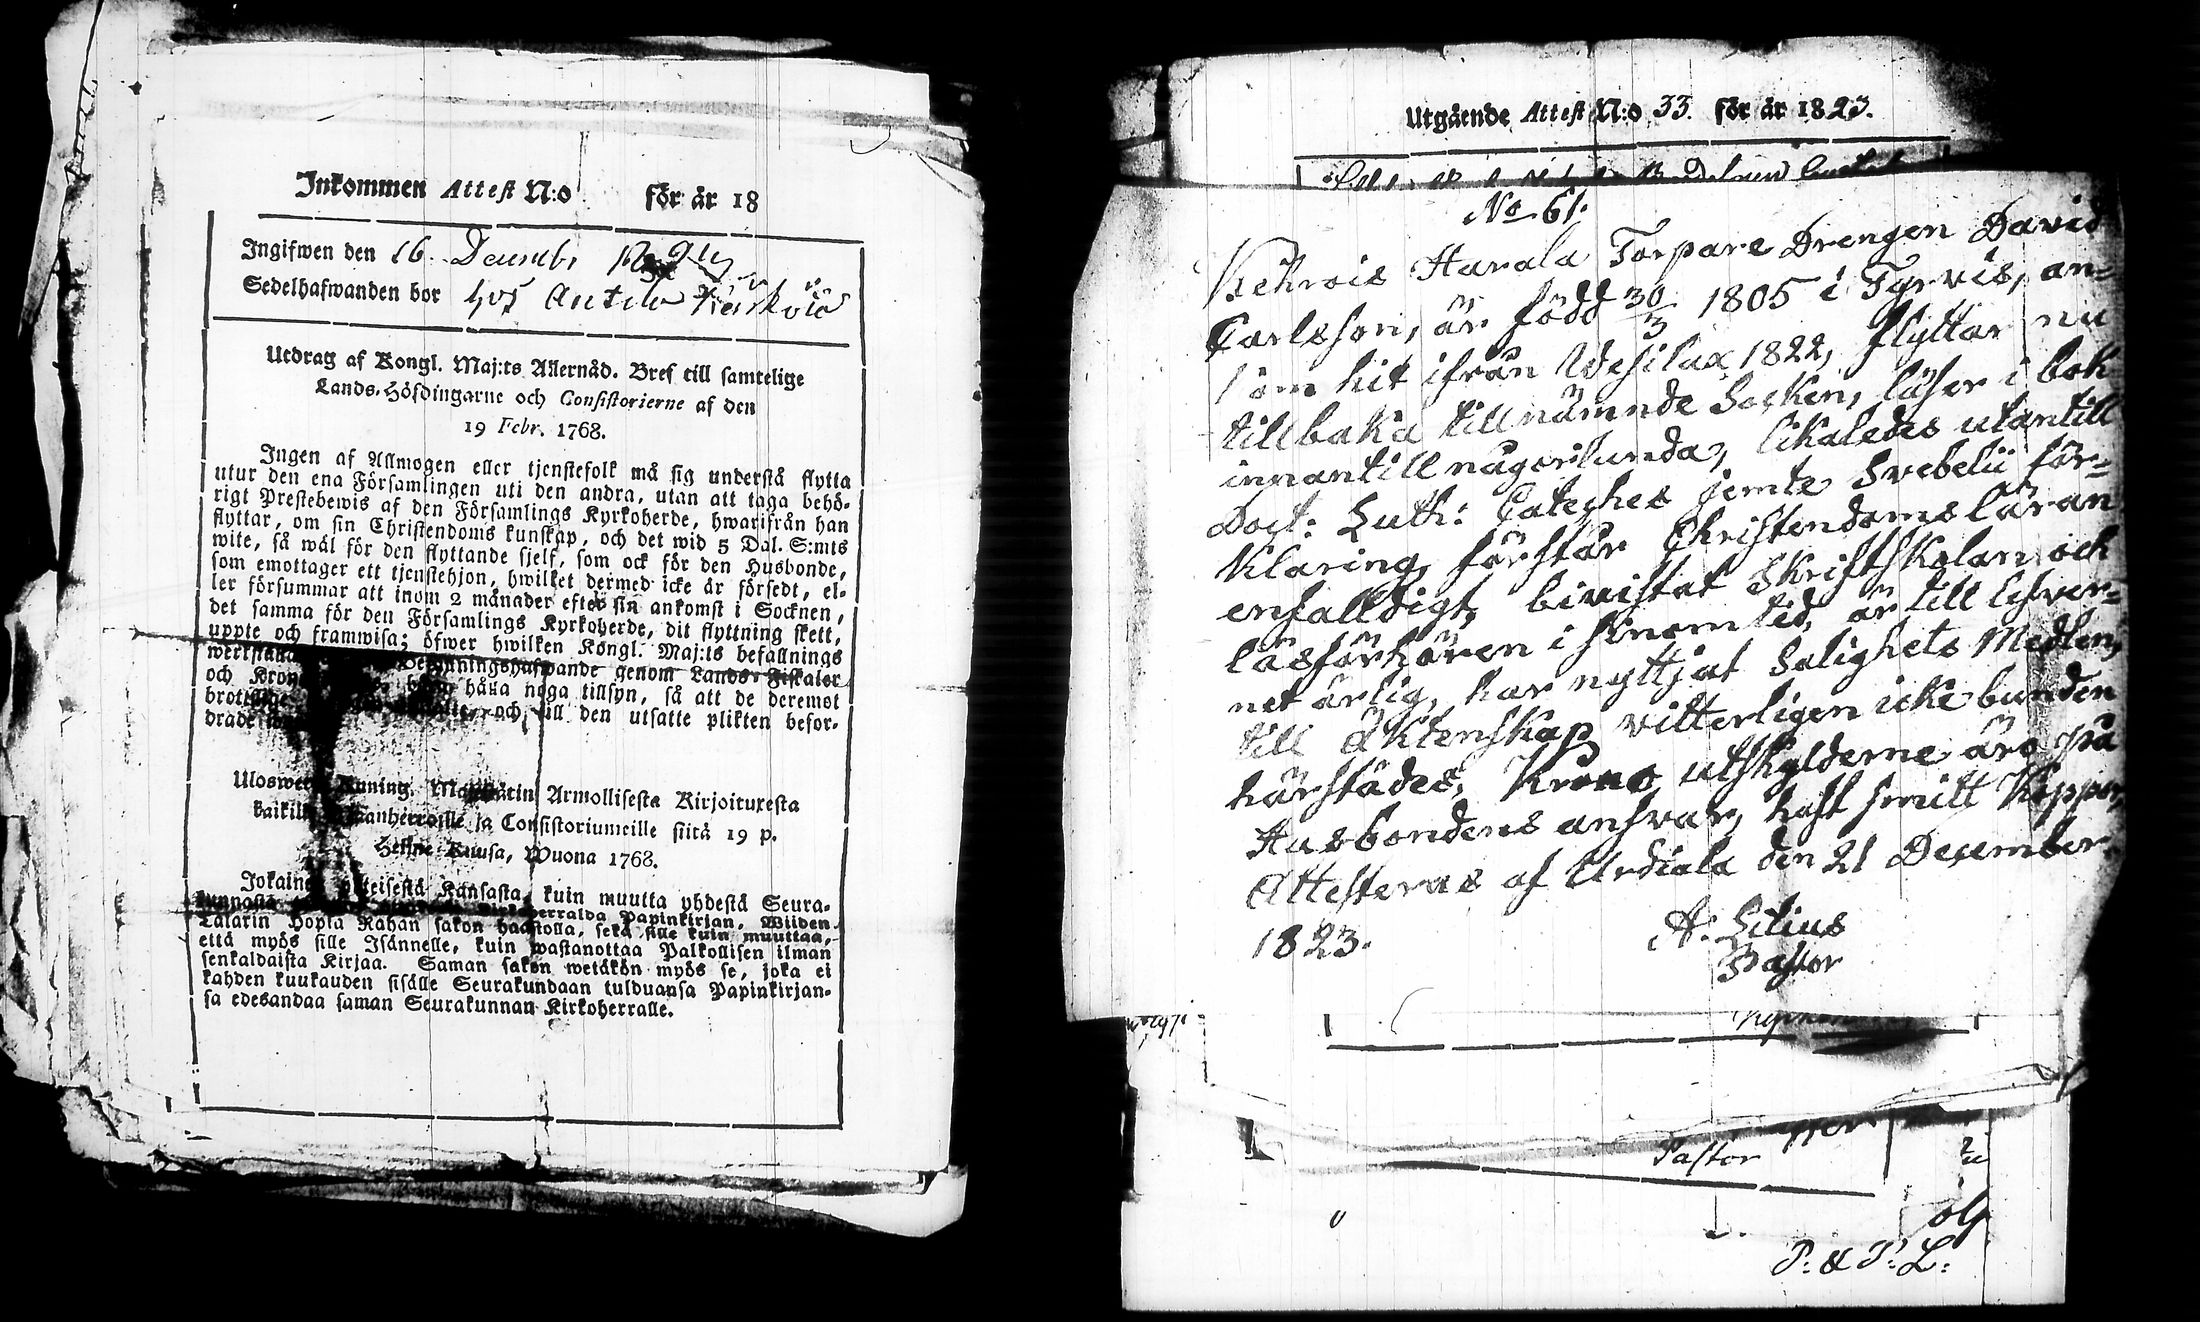 Inkommen Attest N:o för år 18
Ingifwen den 16. Decemb.
Sedelhafwanden bor hos
Utdrag af Kongl. Maj:ts Allernåd. Bref till samtelige
Lands-Höfdingarne och Consistorierne af den
19 Febr. 1768.
Ingen af Allmogen eller tjenstefolk må sig understå flytta
utur den ena Församlingen uti den andra, utan att taga behö-
rigt Prestebewis af den Församlings Kyrkoherde, hwarifrån han
flyttar, om sin Christendoms kunskap, och det wid 5 Dal. S:mts
wite, så wäl för den flyttande sjelf, som ock för den Husbonde,
som emottager ett tjenstehjon, hwilket dermed icke är försedt, el-
ler försummar att inom 2 månader efter sin ankomst i Socknen,
det samma för den Församlings Kyrkoherde, dit flyttning skett,
uppte och framwisa; öfwer hwilken Kongl. Maj:ts befallnings
genom Lands-Fiskaler
och håua noga tillsyn, så att de deremot
och till den utsatte plikten befor-
Uloswe Kuning. Armollisesta Kirjoituxesta
ja Consistoriumeille siitä 19 p.
Kuusa, Wuona 1768.
Kansasta, kuin muutta yhdestä Seura-
Papinkirjan, Wiiden
Talarin Hopia Rahan sakon haastolla, sekä sille kuin muuttaa,
että myös sille Isännelle, kuin wastanottaa Palkollisen ilman
senkaldaista Kirjaa. Saman sakon wetäkön myös se, joka ei
kahden kuukauden sisälle Seurakundaan tulduansa Papinkirjan-
sa edesandaa saman Seurakunnan Kirkoherralle.
Utgående Attest N:o 33. för år 1823.
No 61.
Kehrois Harala Torpare Drengen David
Carlsson, är född 30/3 1805 i Tyrvis, an-
som hit ifrån Wesilax 1822, flyttar nu
tillbaka till nämnde Socken, läser i bok
innantill någorlunda, likaledes utantill
Doct: Luth: Cateches jemte Svebelii för-
klaring, förstår Christendomsläran
enfalldigt, bivistat Skriftskolan och
läsförhören i sinom tid, är till lefver-
net ärlig, har nyttjat Salighets Medlen,
till Äktenskap vitterligen icke bunden
härstädes, Krono utskylderne äro på
Husbondens ansvar, haft Koppor,
Attesteras af Urdiala den 21 December
1823.
A: Lilius
Pastor
Pastor
P: & P: L: